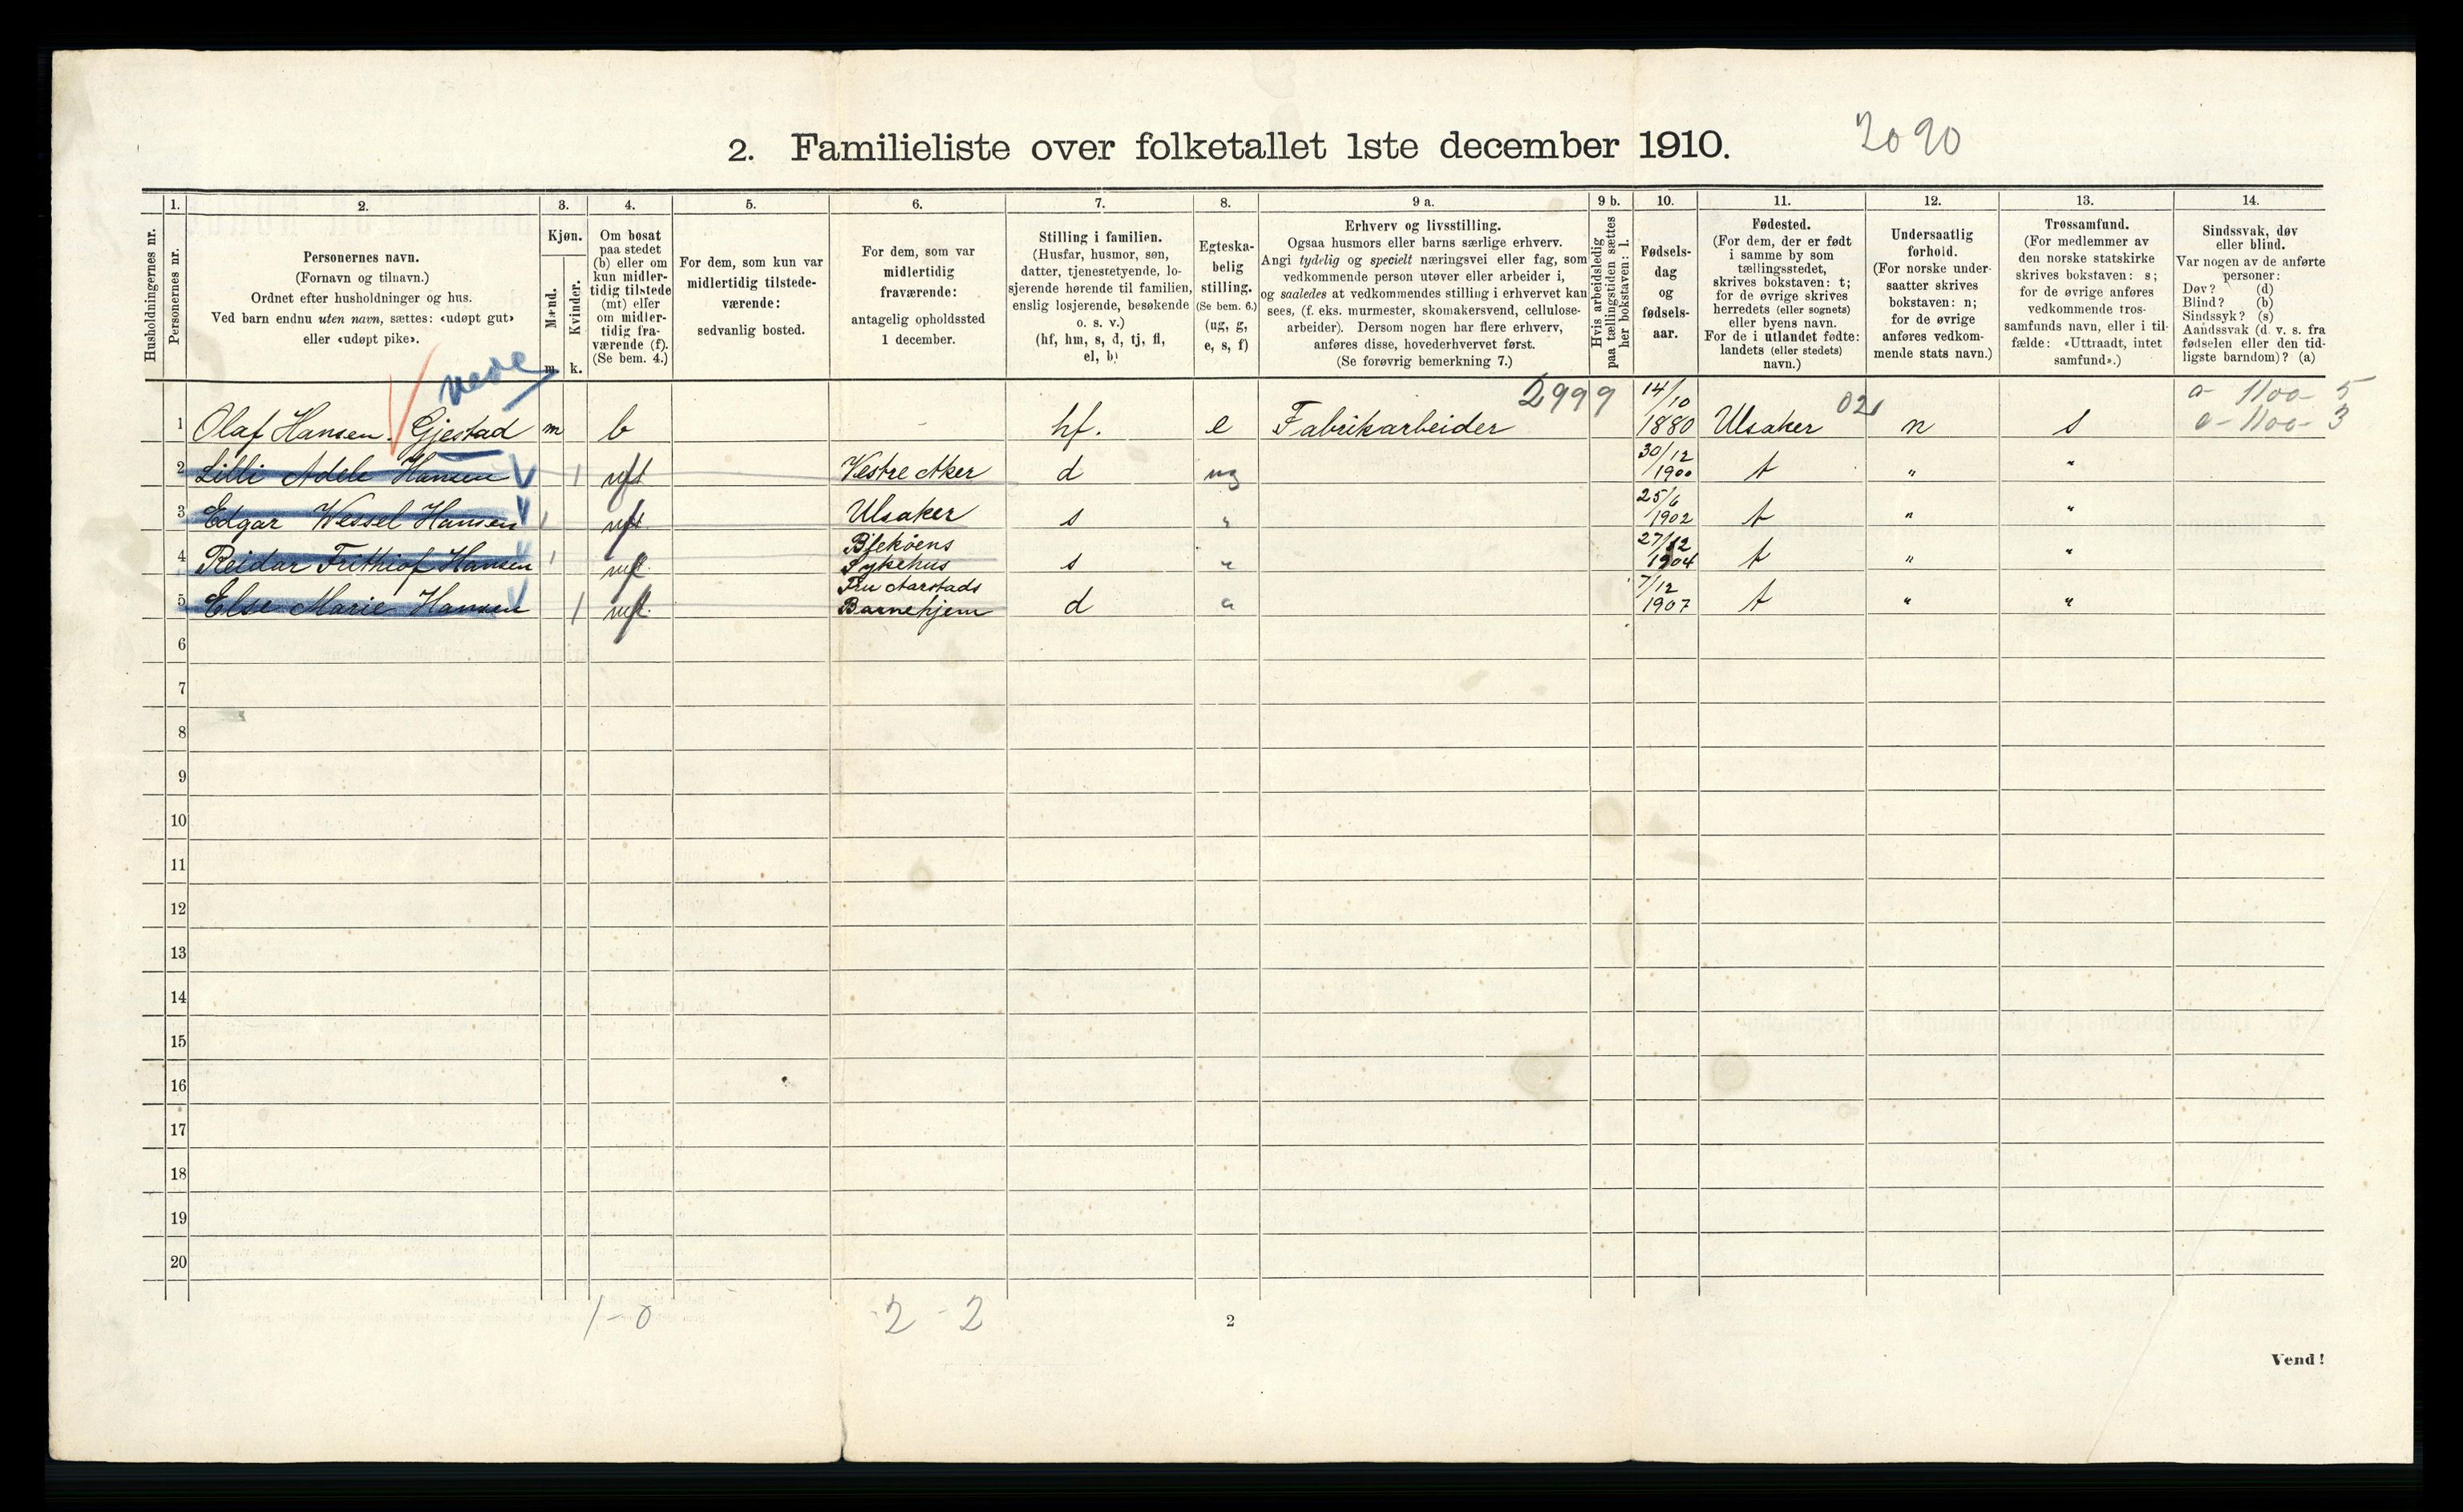 2. Familieliste over folketallet 1ste december 1910. 2090
1. 2. 3. 4. 5. 6. 7. 8. 9 a. 9 b. 10. 11. 12. 13. 14.
Husholdningernes nr.
Personernes nr.
Personernes navn.
(Fornavn og tilnavn.)
Ordnet efter husholdninger og hus.
Ved barn endnu uten navn, sættes: «udøpt gut»
eller «udøpt pike».
Kjøn.
Mænd.
m.
Kvinder.
k.
Om bosat
paa stedet
(b) eller om
kun midler-
tidig tilstede
(mt) eller
om midler-
tidig fra-
værende (f).
(Se bem. 4.)
For dem, som kun var
midlertidig tilstede-
værende:
sedvanlig bosted.
For dem, som var
midlertidig
fraværende:
antagelig opholdssted
1 december.
Stilling i familien.
(Husfar, husmor, søn,
datter, tjenestetyende, lo-
sjerende hørende til familien,
enslig losjerende, besøkende
o. s. v.)
(hf, hm, s, d, tj, fl,
el, b)
Egteska-
belig
stilling.
(Se bem. 6.)
(ug, g,
e, s, f)
Erhverv og livsstilling.
Ogsaa husmors eller barns særlige erhverv.
Angi tydelig og specielt næringsvei eller fag, som
vedkommende person utøver eller arbeider i,
og saaledes at vedkommendes stilling i erhvervet kan
sees, (f. eks. murmester, skomakersvend, cellulose-
arbeider). Dersom nogen har flere erhverv,
anføres disse, hovederhvervet først.
(Se forøvrig bemerkning 7.)
Hvis arbeidsledig
paa tællingstiden sættes
her bokstaven: l.
Fødsels-
dag
og
fødsels-
aar.
Fødested.
(For dem, der er født
i samme by som
tællingsstedet,
skrives bokstaven: t;
for de øvrige skrives
herredets (eller sognets)
eller byens navn.
For de i utlandet fødte:
landets (eller stedets)
navn.)
Undersaatlig
forhold.
(For norske under-
saatter skrives
bokstaven: n;
for de øvrige
anføres vedkom-
mende stats navn.)
Trossamfund.
(For medlemmer av
den norske statskirke
skrives bokstaven: s;
for de øvrige anføres
vedkommende tros-
samfunds navn, eller i til-
fælde: «Uttraadt, intet
samfund».)
Sindssvak, døv
eller blind.
Var nogen av de anførte
personer:
Døv? (d)
Blind? (b)
Sindssyk? (s)
Aandssvak (d. v. s. fra
fødselen eller den tid-
ligste barndom)? (a)
2999 14/10 021 0- 1100- 5
1 Olaf Hansen. Gjestad m b - hf. e Fabrikarbeider 1880 Ulsaker n s 0- 1100- 3
2 Lilli Adele Hansen 1 Vestre Aker d ug 30/12 1900 t " "
3 Edgar Wessel Hansen 1 Ulsaker s " 25/6 1902 t " "
4 Reidar Frithiof Hansen 1 Sykehus s " 27/12 1904 t " "
Fru Aarstads
5 Else Marie Hansen 1 Barnehjem d " 7/12 1907 t " "
6
7
8
9
10
11
12
13
14
15
16
17
18
19
20
1-0 2-2
2
Vend!